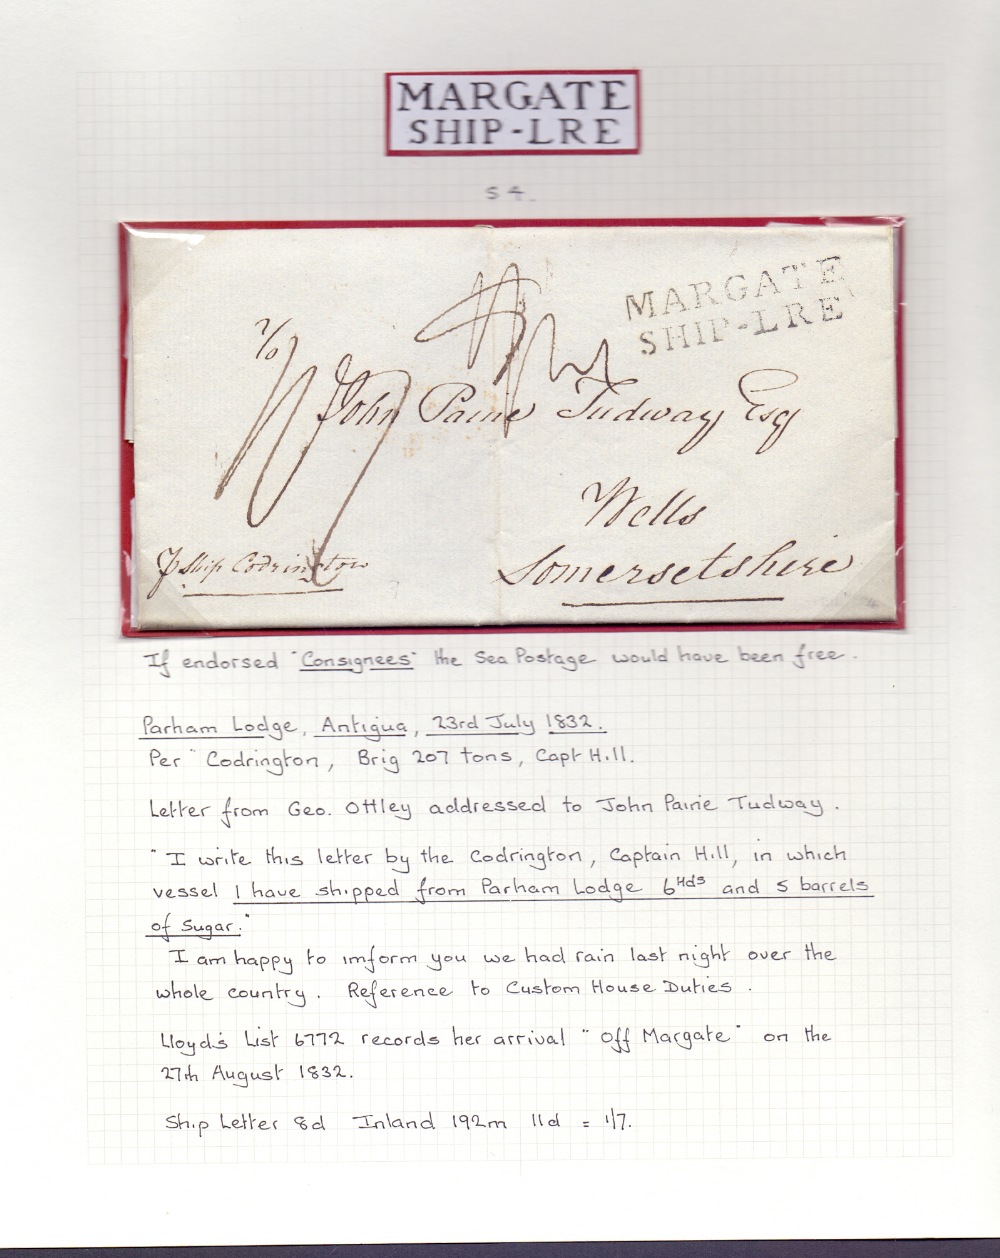 MARGATE
SHIP-LRE
S 4.
MARGATE
SHIP-LRE
1/7
John Paine Tudway Esq
Wells
Somersetshire
p. Ship Codrington
If endorsed "Consignees" the Sea Postage would have been free.
Parham Lodge, Antigua, 23rd July 1832.
Per "Codrington, Brig 207 tons, Capt Hill.
Letter from Geo. Ottley addressed to John Paine Tudway.
"I write this letter by the Codrington, Captain Hill, in which
vessel I have shipped from Parham Lodge 6Hds and 5 barrels
of Sugar."
I am happy to imform you we had rain last night over the
whole country. Reference to Custom House Duties.
Lloyd's List 6772 records her arrival "off Margate" on the
27th August 1832.
Ship Letter 8d Inland 192m 11d = 1/7.